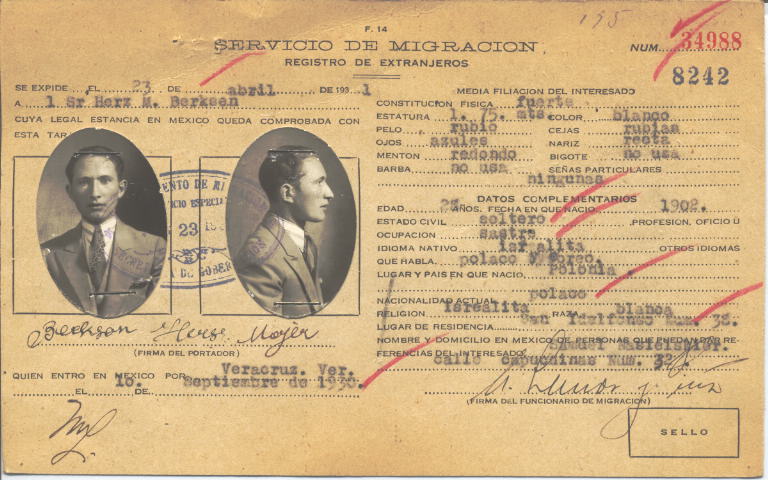 135
F. 14
SERVICIO DE MIGRACION
REGISTRO DE EXTRANJEROS
NUM. 34988
8242
SE EXPIDE EL 23 DE abril DE 193 1
A l Sr Herz M. Berksen
CUYA LEGAL ESTANCIA EN MEXICO QUEDA COMPROBADA CON
ESTA TAR
23
Berkson Hersz Majer
(FIRMA DEL PORTADOR)
QUIEN ENTRO EN MEXICO POR Veracruz. Ver.
EL 10. DE Septiembre de 1930.
MEDIA FILIACION DEL INTERESADO
CONSTITUCION FISICA fuerte
ESTATURA 1. 75. mts. COLOR blanco
PELO rubio CEJAS rubias
OJOS azules NARIZ recta
MENTON redondo BIGOTE no usa
BARBA no usa SEÑAS PARTICULARES
ningunas
DATOS COMPLEMENTARIOS
EDAD AÑOS. FECHA EN QUE NACIO 1902.
ESTADO CIVIL soltero PROFESION, OFICIO U
OCUPACION sastre
IDIOMA NATIVO OTROS IDIOMAS
QUE HABLA. polaco
LUGAR Y PAIS EN QUE NACIO. Polonia.
NACIONALIDAD ACTUAL polaco
RELIGION Isrealita RAZA blanca
LUGAR DE RESIDENCIA San Ildelfonso Num. 38.
NOMBRE Y DOMICILIO EN MEXICO DE PERSONAS QUE PUEDAN DAR RE-
FERENCIAS DEL INTERESADO
calle capuchinas Num. 32
(FIRMA DEL FUNCIONARIO DE MIGRACION)
SELLO